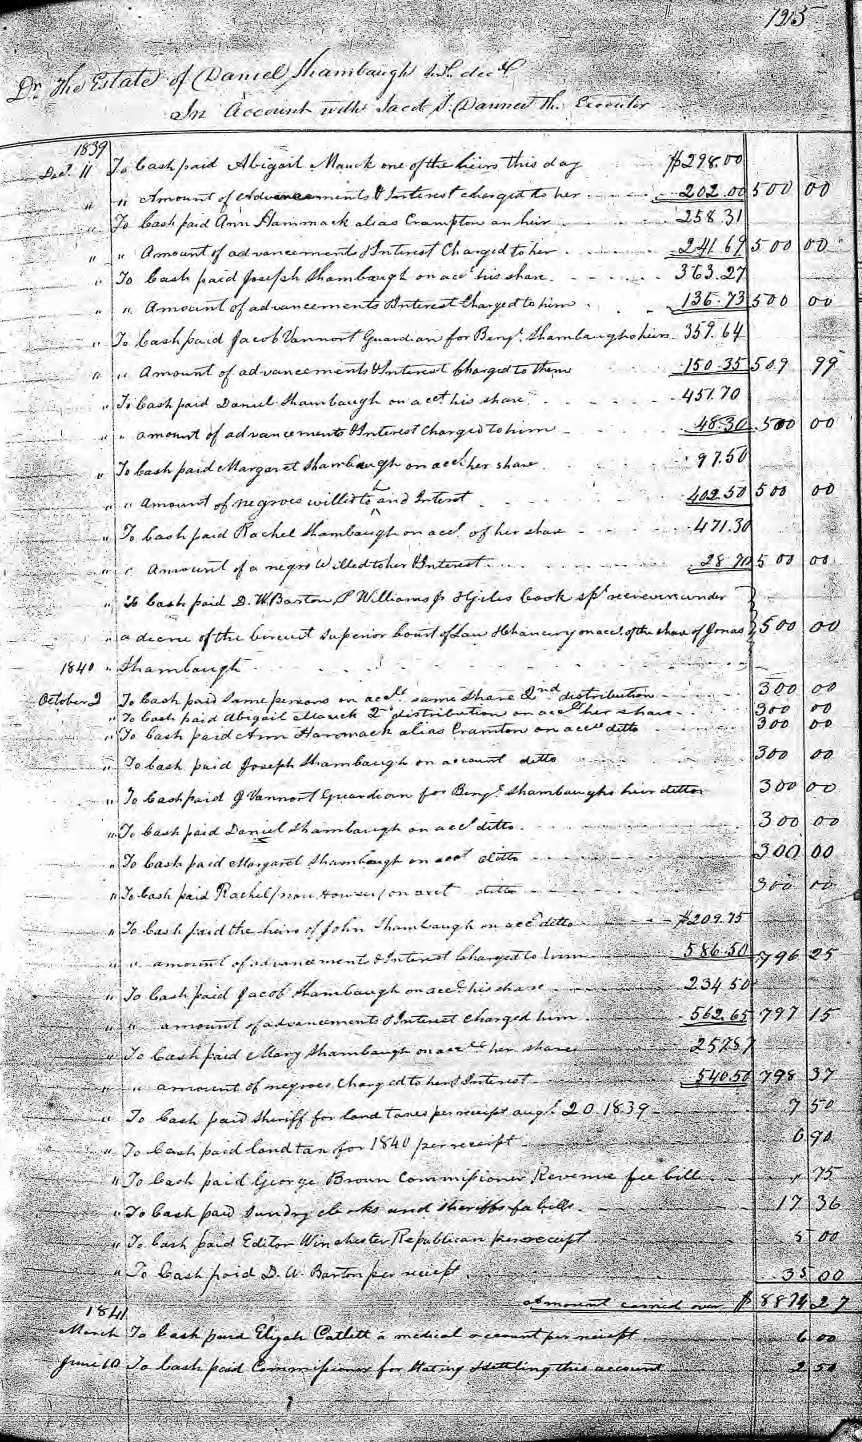 1215
Dr. The Estate of Daniel Shambaugh decd
In Account with Jacob S. Danner the Executor
1839
Decr 11 To Cash paid Abigail Mauck one of the heirs this day $298.00
" " Amount of Advancements & Interest charged to her 202.00 500 00
" To Cash paid Ann Hammack alias Crampton an heir 258.31
" " Amount of advancements & Interest Charged to her 241.69 500 00
" To Cash paid Joseph Shambaugh on acct his share 363.27
" " Amount of advancements & Interest Charged to him 136.73 500 00
" To Cash paid Jacob Vannort Guardian for Benj. Shambaughs heirs 359.64
" " Amount of advancements & Interest Charged to them 150.35 509 99
" To Cash paid Daniel Shambaugh on acct his share 451.70
" " amount of advancements & Interest Charged to him 48.30 500 00
" To Cash paid Margaret Shambaugh on acct her share 97.50
" " Amount of negroes willed to and Interst 402.50 500 00
" To Cash paid Rachel Shambaugh on acct of her share 471.30
" " Amount of a negro Willed to her & Interest 28.70 500 00
" To Cash paid D. W. Barton, P Williams Jr & Giles Cook under
" a decree of the Circuit Superior Court of Law & Chancery on acct. of the share of Jonas 500 00
1840 " Shambaugh
October 2 To Cash paid same persons on acct. same share 2nd distribution 300 00
" To Cash paid Abigail Mauck 2d distribution on acct her share 300 00
" To Cash paid Ann Hammack alias Cramton on acct ditto 300 00
" To Cash paid Joseph Shambaugh on account ditto 300 00
" To Cash paid J Vannort Guardian for Benj. Shambaughs heir ditto 300 00
" To Cash paid Daniel Shambaugh on acct ditto 300 00
" To Cash paid Margaret Shambaugh on acct ditto 300 00
" To Cash paid Rachel (now Howser) on acct ditto 300 00
" To Cash paid the heirs of John Shambaugh on acct ditto $209.75
" " amount of advancements & Interest Charged to him 586.50 796 25
" To Cash paid Jacob Shambaugh on acct his share 234 50
" " amount of advancements & Interest Charged him 562.65 797 15
" To Cash paid Mary Shambaugh on acct her share 257.87
" " amount of negroes Charged to her & Interest 540.50 798 37
" To Cash paid Sheriff for land taxes per receipt augt. 20 1839 7 50
" To Cash paid land tax for 1840 per receipt 6 90
" To Cash paid George Brown Commissioner Revenue fee bill " 75
" To Cash paid sundry clerks and sheriffs fa bills 17 36
" To Cash paid Editor Winchester Republican per receipt 5 00
" To Cash paid D. W. Barton per receipt 35 00
Amount carried over $ 8874 27
1841
March To Cash paid Elijah Catlett a medical account per receipt 6 00
June 10 To Cash paid Commissioner for stating & settling this account 2 50